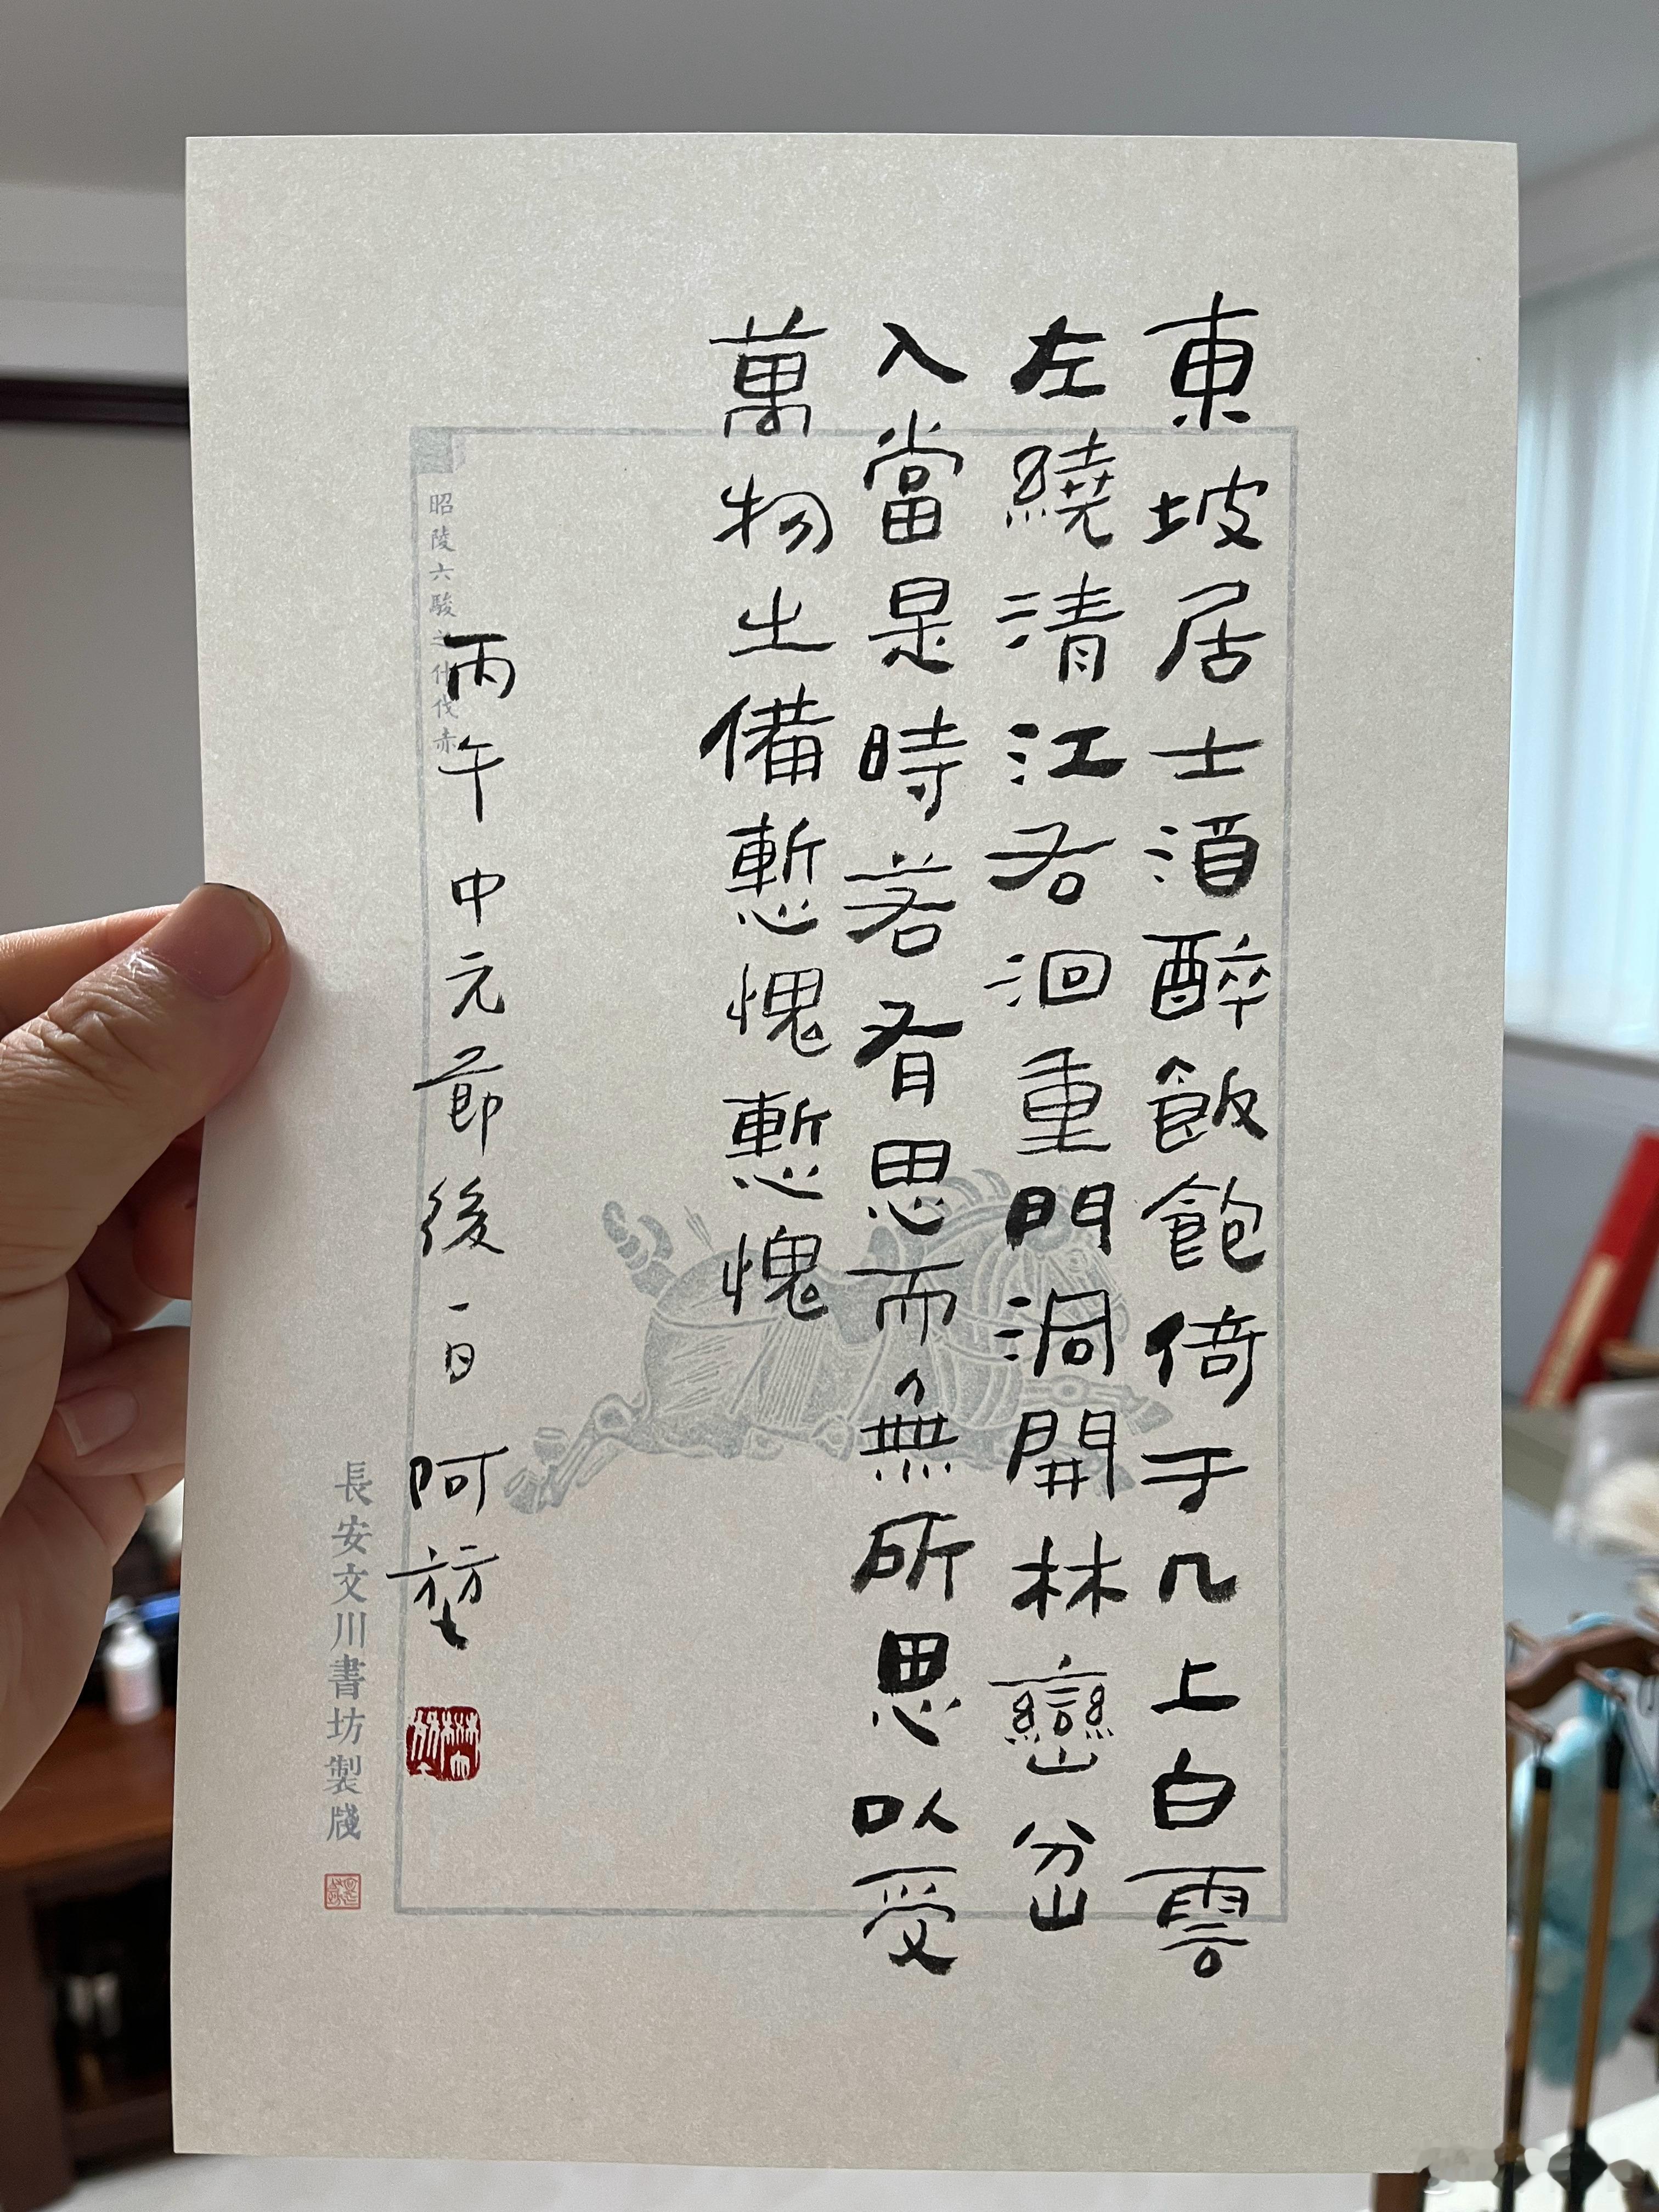 東坡居士酒醉飯飽倚于几上白雲
左繞清江右洄重門洞開林巒岔
入當是時若有思而無所思以受
萬物之備慙愧慙愧
丙午中元節後一日阿堃
昭陵六駿之什伐赤
長安文川書坊製牋